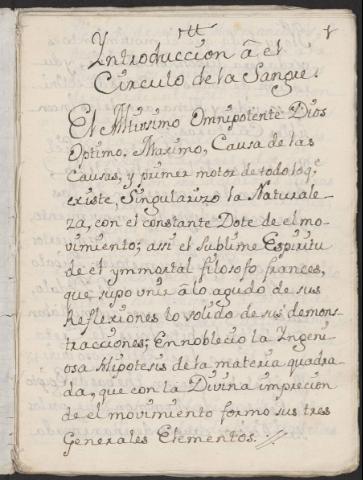 Yntroduccion â el
Circulo de la Sangre.
El Altissimo Omnipotente Dios
Optimo, Maximo, Causa de las
Causas, y primer motor de todo lo q.e
existe, Singularizo la Naturale-
za, con el constante Dote de el mo-
vimiento; assi el Sublime Espiritu
de el ymmortal filosofo frances,
que supo unir â lo agudo de sus
Reflexiones lo solido de sus demons-
tracciones; Ennoblecio la Yngeni-
osa Hipotesis de la materia quadra-
da, que con la Divina imprecion
de el movimiento formo sus tres
Generales Elementos.